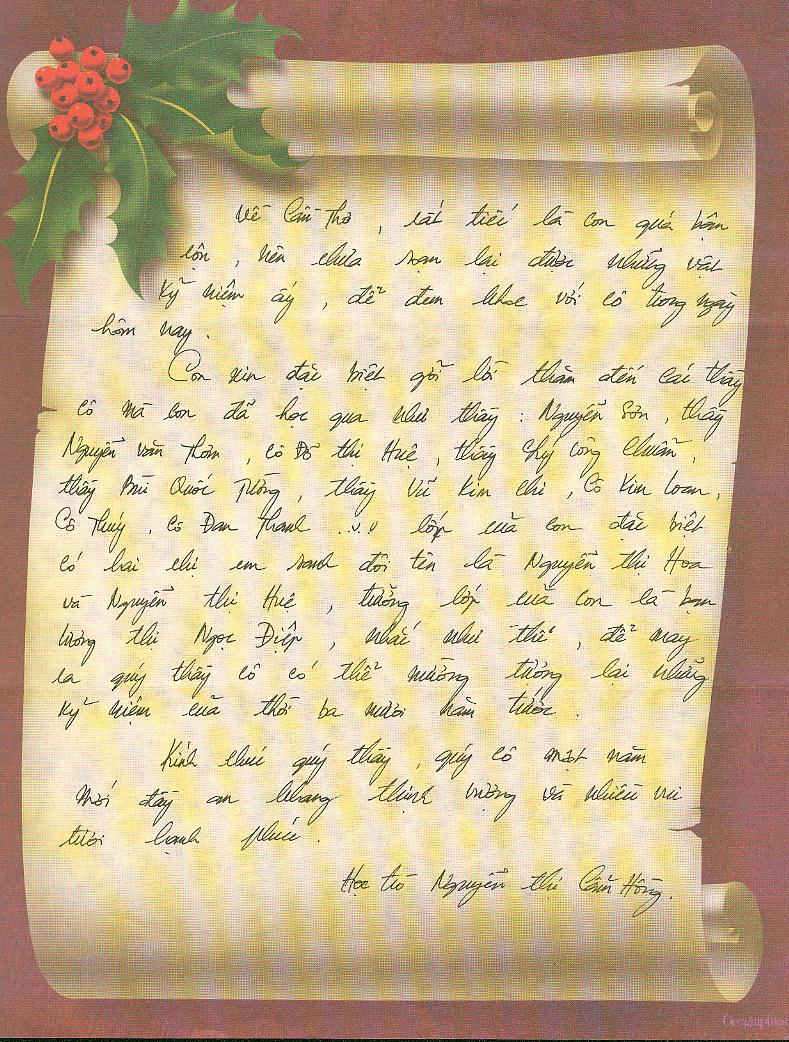 Về Cần Thơ, rất tiếc là con quá bận
rộn, nên chưa soạn lại được những vật
kỷ niệm ấy, để đem khoe với cô trong ngày
hôm nay.
Con xin đặc biệt gởi lời thăm đến các thầy
cô mà con đã học qua như thầy: Nguyễn Sơn, thầy
Nguyễn văn Thơm, cô Đỗ thị Huệ, thầy Lý Công Chuẩn,
thầy Bùi Quốc Tường, thầy Vũ Kim Chi, Cô Kim Loan,
Cô Thúy, cô Đan Thanh ..v.v lớp của con đặc biệt
có hai chị em sanh đôi tên là Nguyễn thị Hoa
và Nguyễn thị Huê, trưởng lớp của con là bạn
Lương thị Ngọc Điệp, nhắc như thế, để may
ra quý thầy cô có thể mường tượng lại những
kỷ niệm của thời ba mươi năm trước.
Kính chúc quý thầy, quý cô một năm
mới đầy an khang thịnh vượng và nhiều vui
tươi hạnh phúc.
Học trò Nguyễn thị Cẩm Hồng.